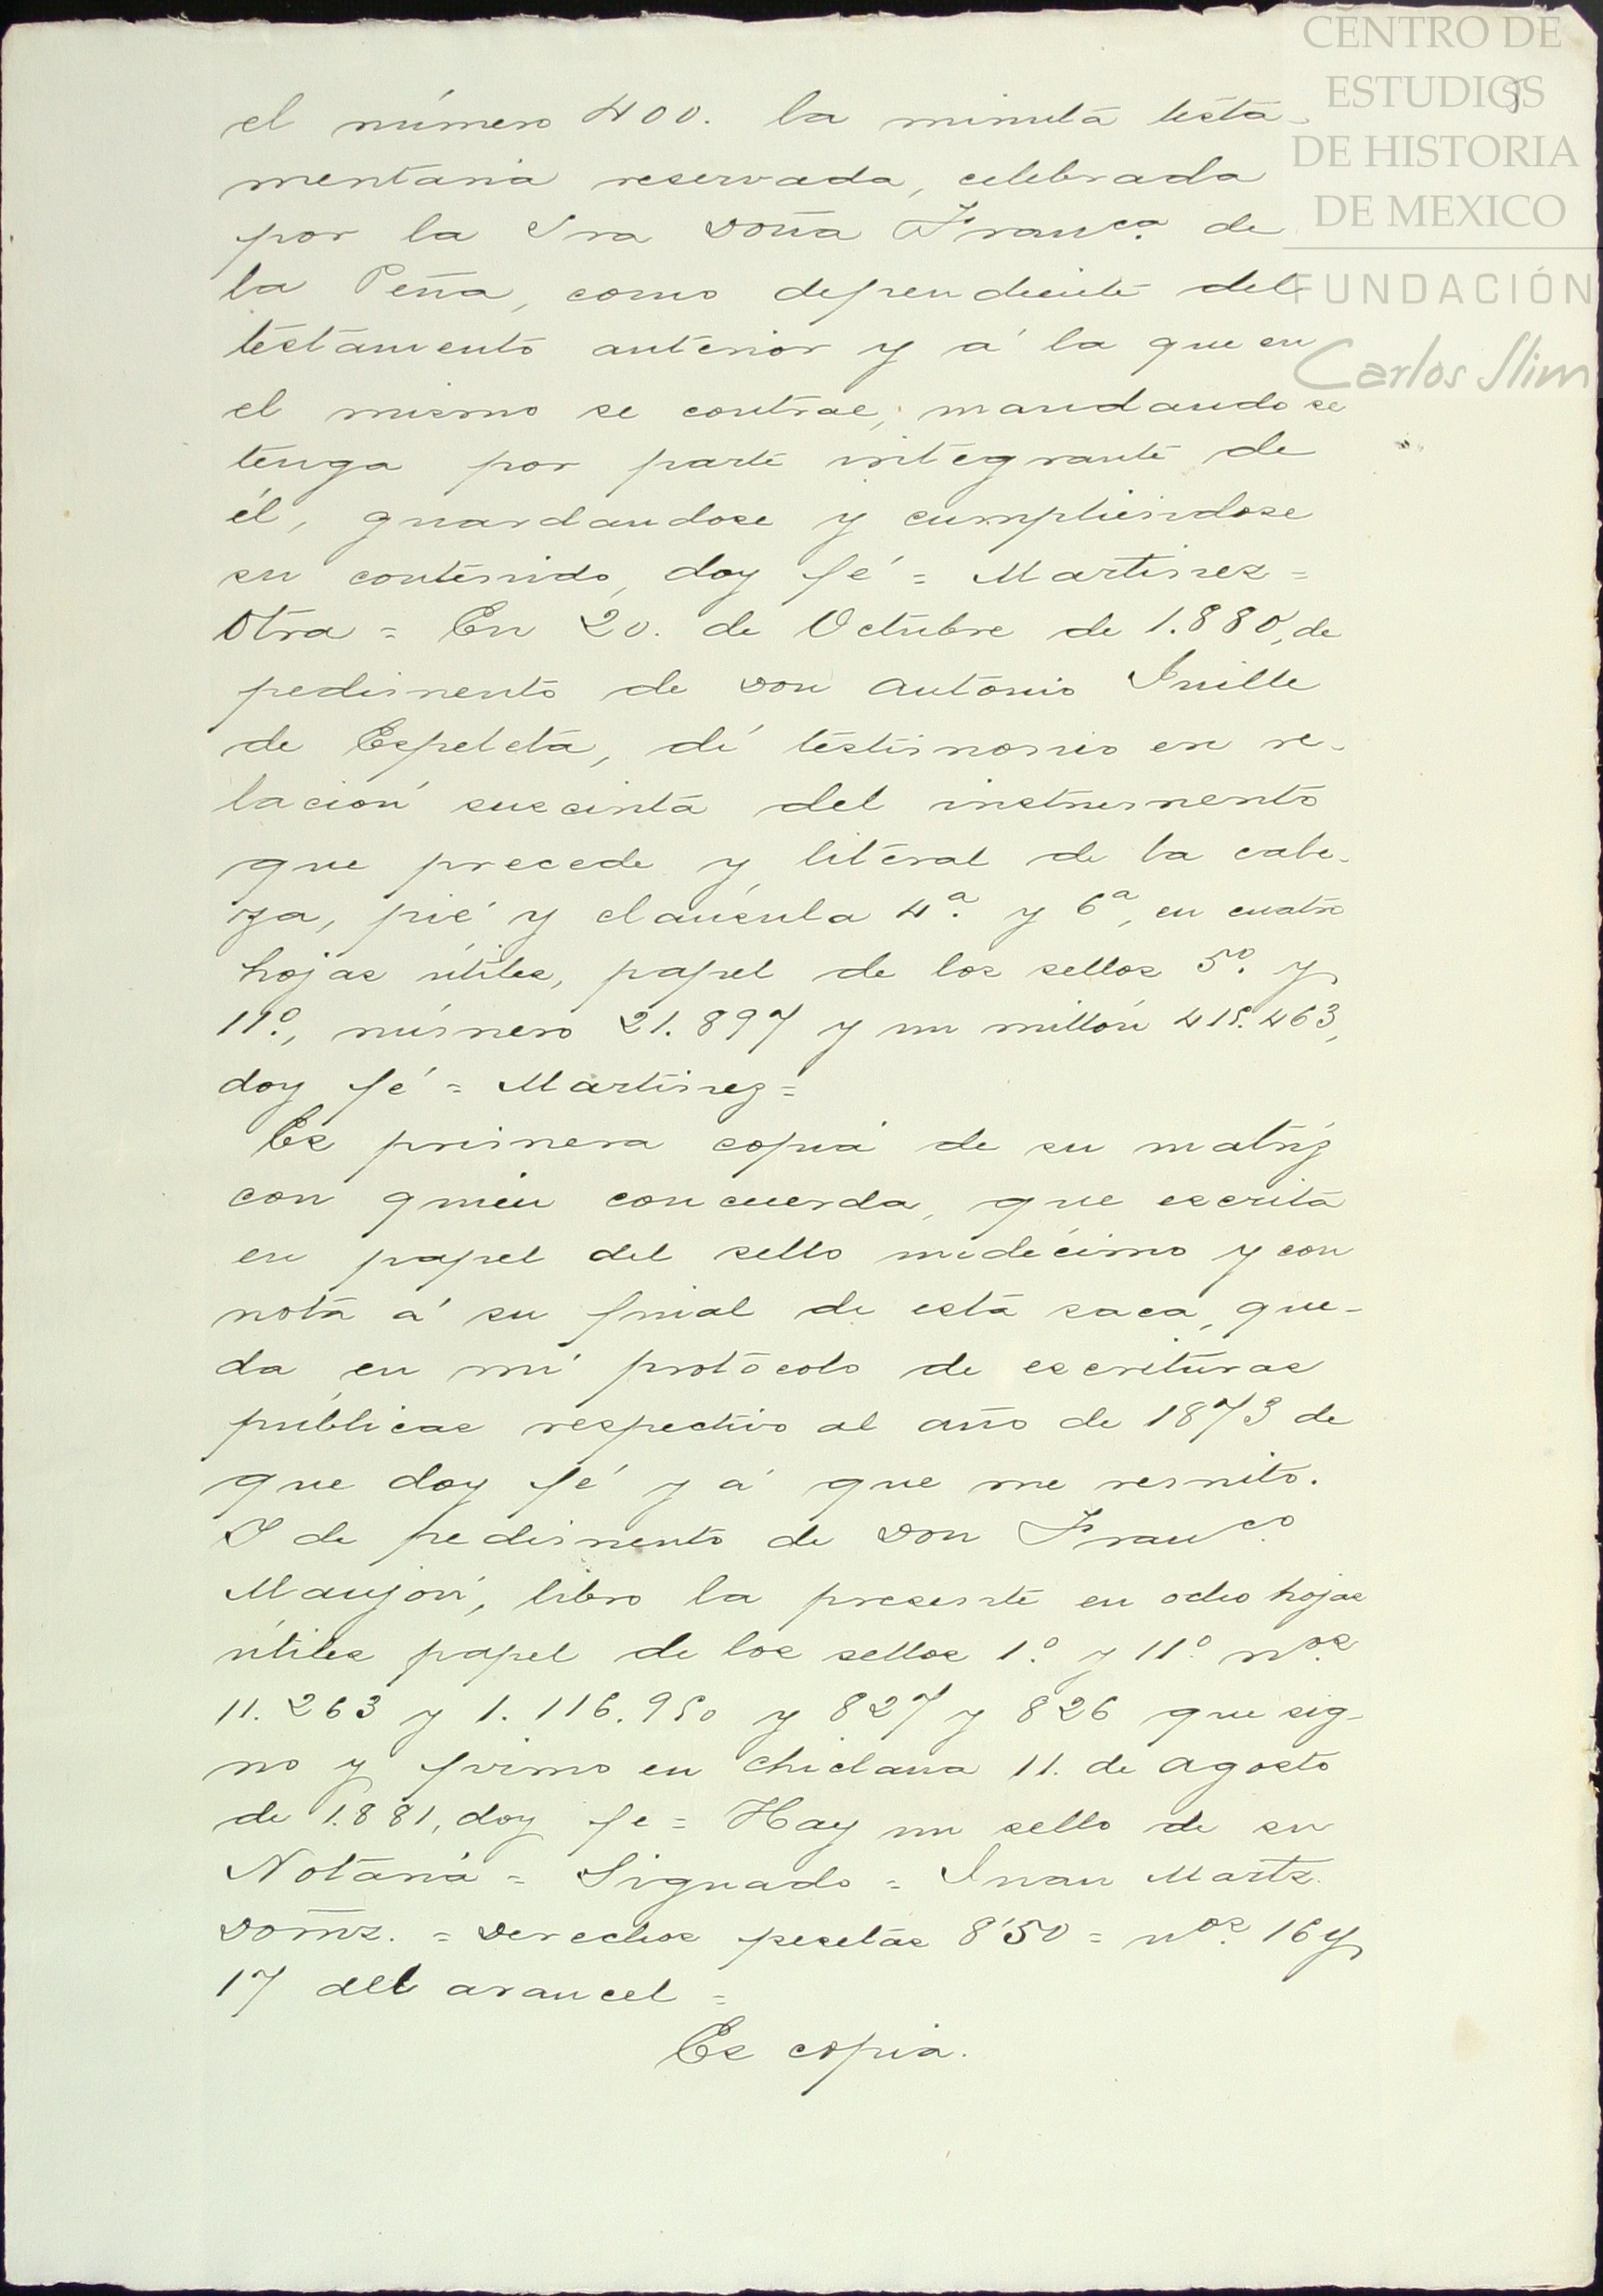 CENTRO DE
ESTUDIOS
DE HISTORIA
DE MEXICO
FUNDACIÓN
Carlos Slim
el número 400. la minuta testa-
mentaria reservada, celebrada
por la Sra Doña Franca. de
la Peña, como dependiente del
testamento anterior y á la que en
el mismo se contrae, mandando se
tenga por parte integrante de
él, guardandose y cumpliendose
su contenido, doy fé = Martinez =
Otra = En 20. de Octubre de 1.880, de
pedimento de Don Antonio
de Espeleta, dí testimonio en re-
lación suscinta del instrumento
que precede y literal de la cabe-
za, pié y claúsula 4ª. y 6ª, en cuatro
hojas útiles, papel de los sellos 5º. y
11º., número 21.897 y un millón 418.463,
doy fé = Martinez =
Es primera copia de su matríz
con quien concuerda, que escrita
en papel del sello undécimo y con
nota á su final de esta saca, que-
da en mi protocolo de escrituras
públicas respectivo al año de 1873 de
que doy fé y á que me remito.
I de pedimento de Don Franco.
Manjón, libro la presente en ocho hojas
útiles papel de los sellos 1º. y 11º. nos.
11.263 y 1.116.950 y 827 y 826 que sig-
no y firmo en Chiclana 11. de Agosto
de 1.881, doy fe = Hay un sello de su
Notaria = Signado = Juan Martz.
Domz. = Derechos pesetas 8'50 = nos. 16 y
17 del arancel =
Es copia.